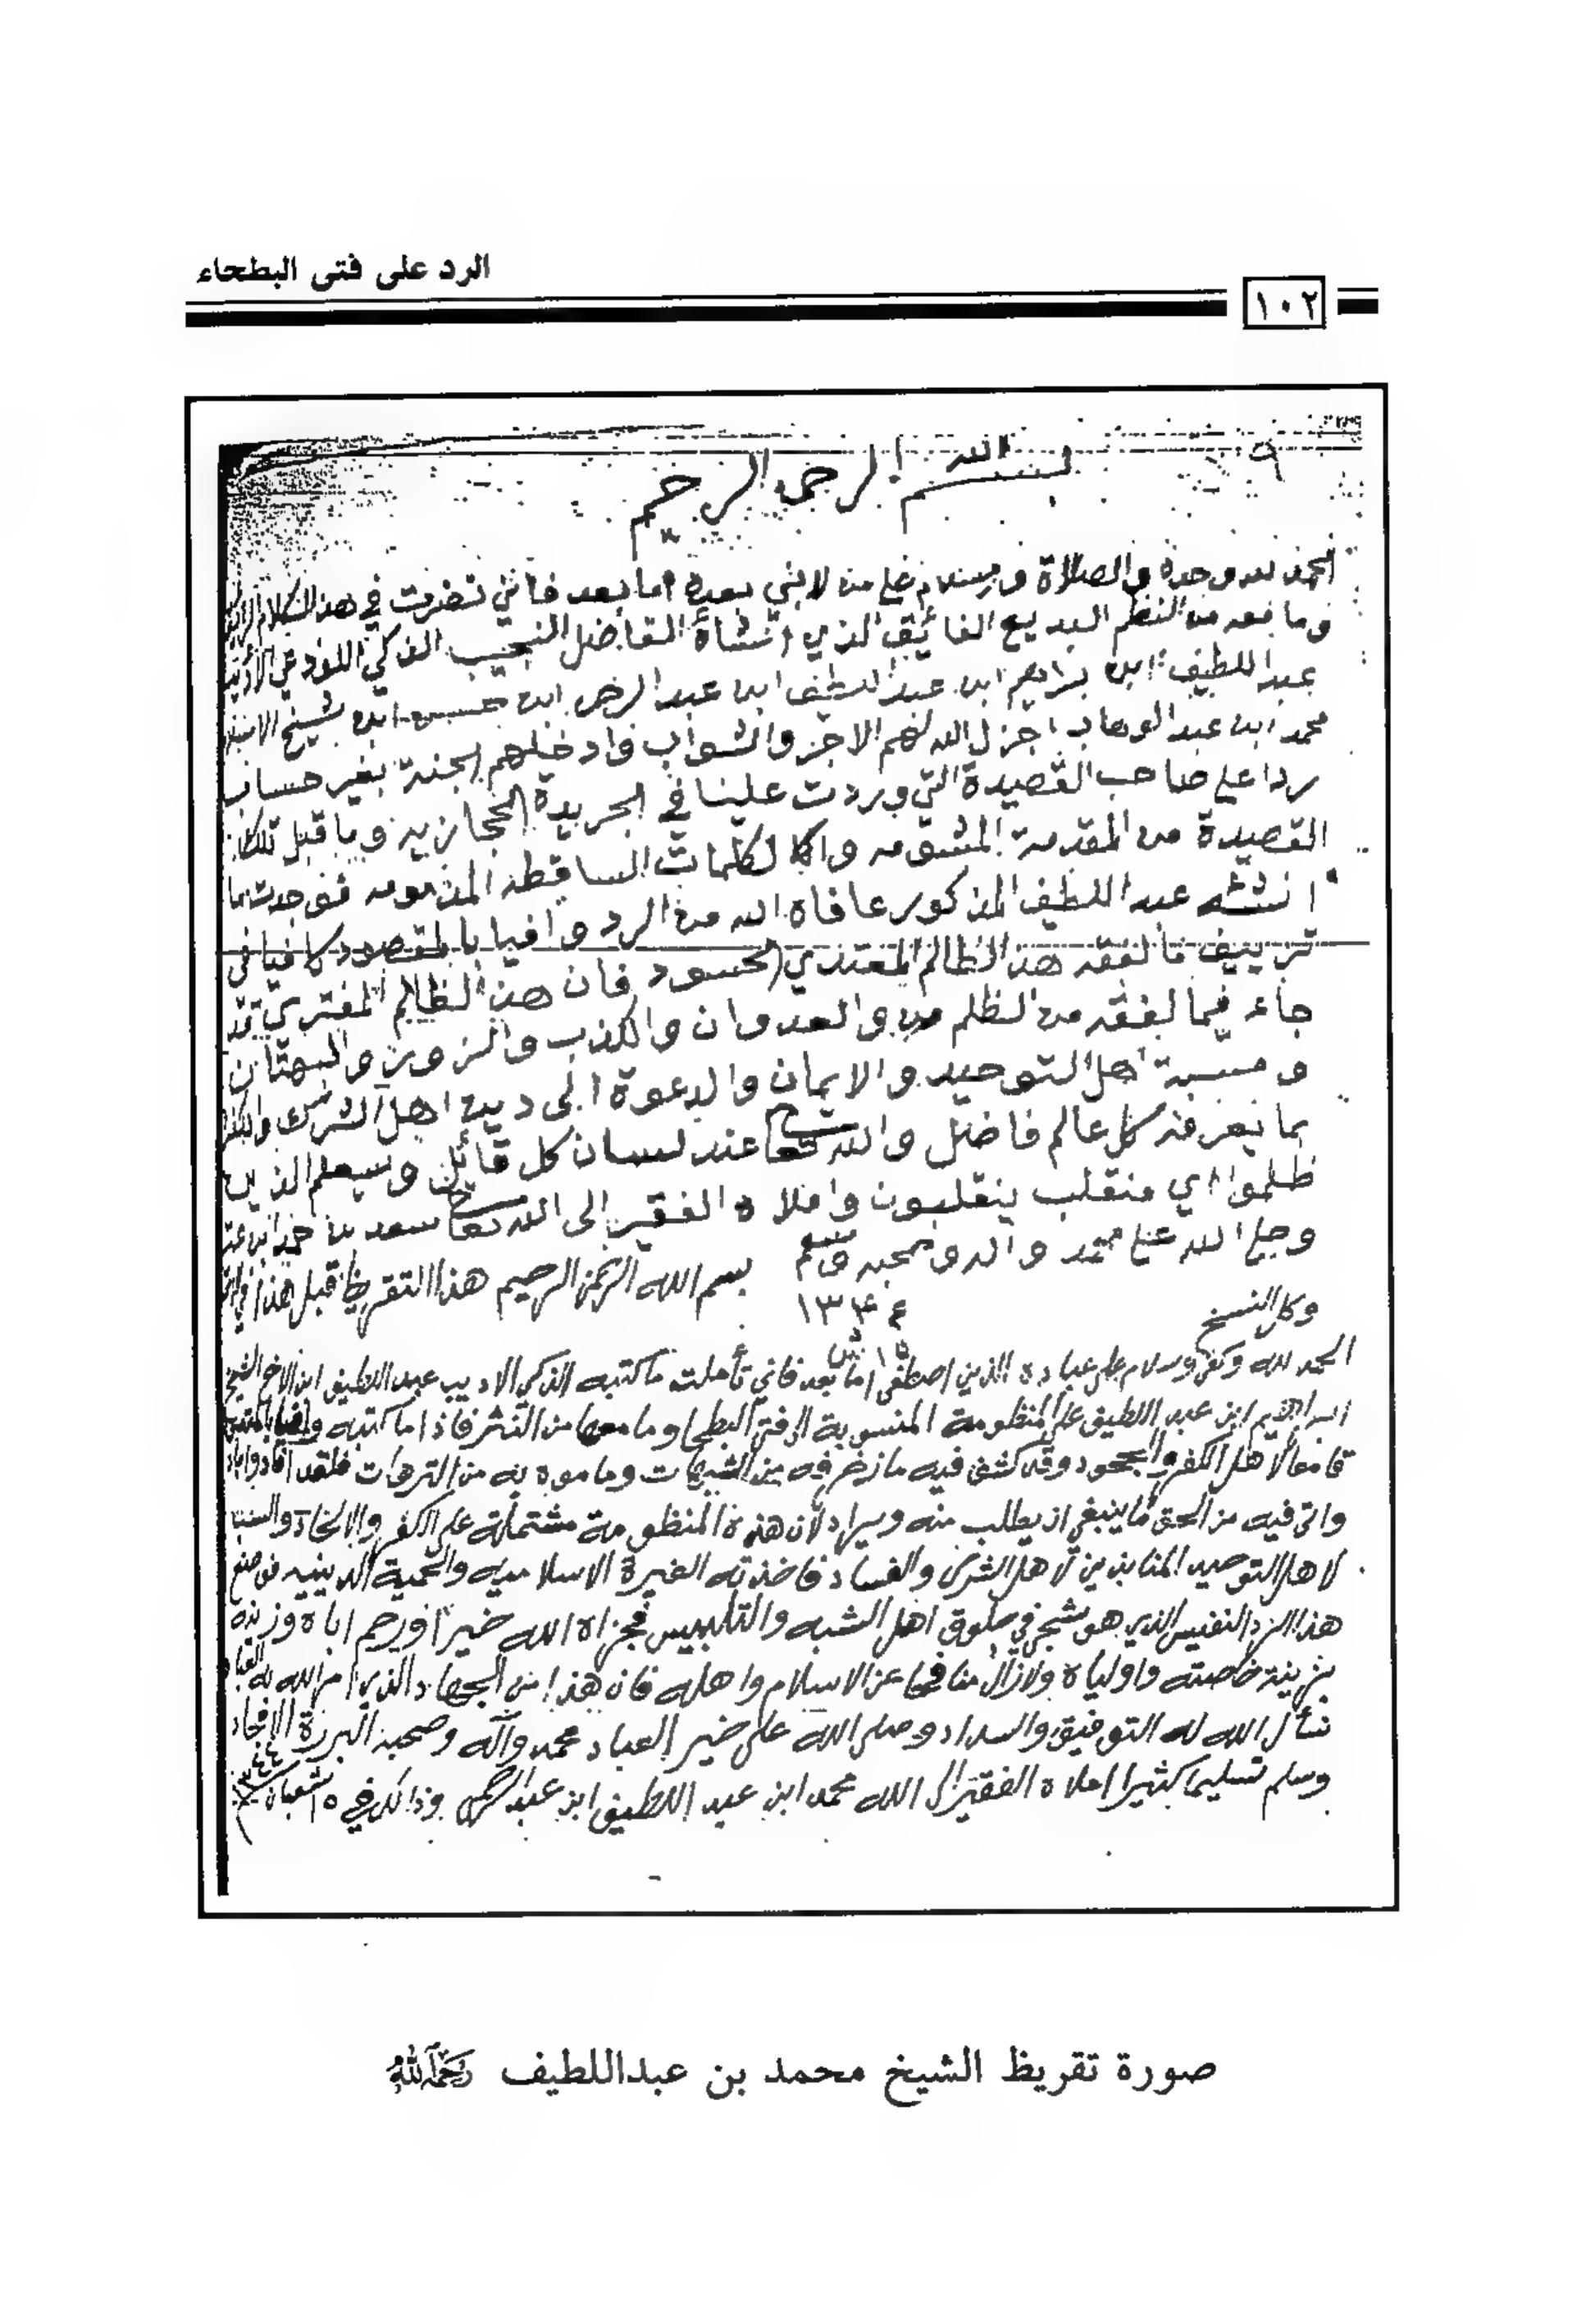 الرد على فتى البطحاء
١٠٢
٩
بسم الله الرحمن الرحيم
الحمد لله وحده والصلاة والسلام على من لا نبي بعده اما بعد فاني نضرت في هذا الكلام
وما معه من النظم البديع الفائق الذي انشأه الفاضل النجيب الذكي اللوذعي الأديب
عبد اللطيف ابن براهيم ابن عبد اللطيف ابن عبد الرحمن ابن حسن ابن شيخ الاسلام
محمد ابن عبد الوهاب اجزل الله لهم الاجر والثواب وادخلهم الجنة بغير حساب
ردا على صاحب القصيدة التي وردت علينا في الجريدة الحجازيه وما قبل تلك
القصيدة من المقدمة المشومه والكلمات الساقطه المذمومه فوجدت ما
انشئه عبد اللطيف المذكور عافاه الله من الرد وافيا بالمقصود كافيا في
تزييف ما لفقه هذا الظالم المعتدي الحسود فان هذا الظالم المفتري قد
جاء فيما لفقه من الظلم والعدوان والكذب والزور والبهتان
ومسبة اهل التوحيد والايمان والدعوة الى دين اهل الشرك والكفر
بما يعرفه كل عالم فاضل والله تعا عند لسان كل قائل وسيعلم الذين
ظلموا اي منقلب ينقلبون واملاه الفقير الى الله تعا سعد بن حمد ابن عتيق
وصلى الله على محمد واله وصحبه وسلم
١٣٤٤
بسم الله الرحمن الرحيم هذا التقريظ قبل هذا في
وكل النسخ
١٥ ش
الحمد لله وكفى وسلام على عباده الذين اصطفى اما بعد فاني تأملت ما كتبه الذكي الاديب عبد اللطيف ابن الاخ الشيخ
ابراهيم ابن عبد اللطيف على المنظومة المنسوبة الى فتى البطحا وما معها من النثر فاذا ما كتبه وافيا بالمقصود
قامعا لأهل الكفر والجحود وقد كشف فيه ما زخرفه من الشبهات وما موه به من الترهات فلقد افاد واجاد
واتى فيه من الحق ما ينبغي ان يطلب منه ويراد لأن هذه المنظومة مشتملة على الكفر والالحاد والسباب
لاهل التوحيد المنابذين لاهل الشرك والفساد فاخذته الغيرة الاسلاميه والحمية الدينيه فوضع
هذا الرد النفيس الذي هو شجى في حلوق اهل الشبه والتلبيس فجزاه الله خيرا ورحم اباه وزينه
بزينة خاصته واولياه ولازال منافحا عن الاسلام واهله فان هذا من الجهاد الذي امر الله به العباد
نسأل الله له التوفيق والسداد وصلى الله على خير العباد محمد وآله وصحبه البررة الامجاد
وسلم تسليما كثيرا املاه الفقير الى الله محمد ابن عبد اللطيف ابن عبد الرحمن وذلك في ١٥ شعبان ١٣٤٤
صورة تقريظ الشيخ محمد بن عبداللطيف رحمه الله